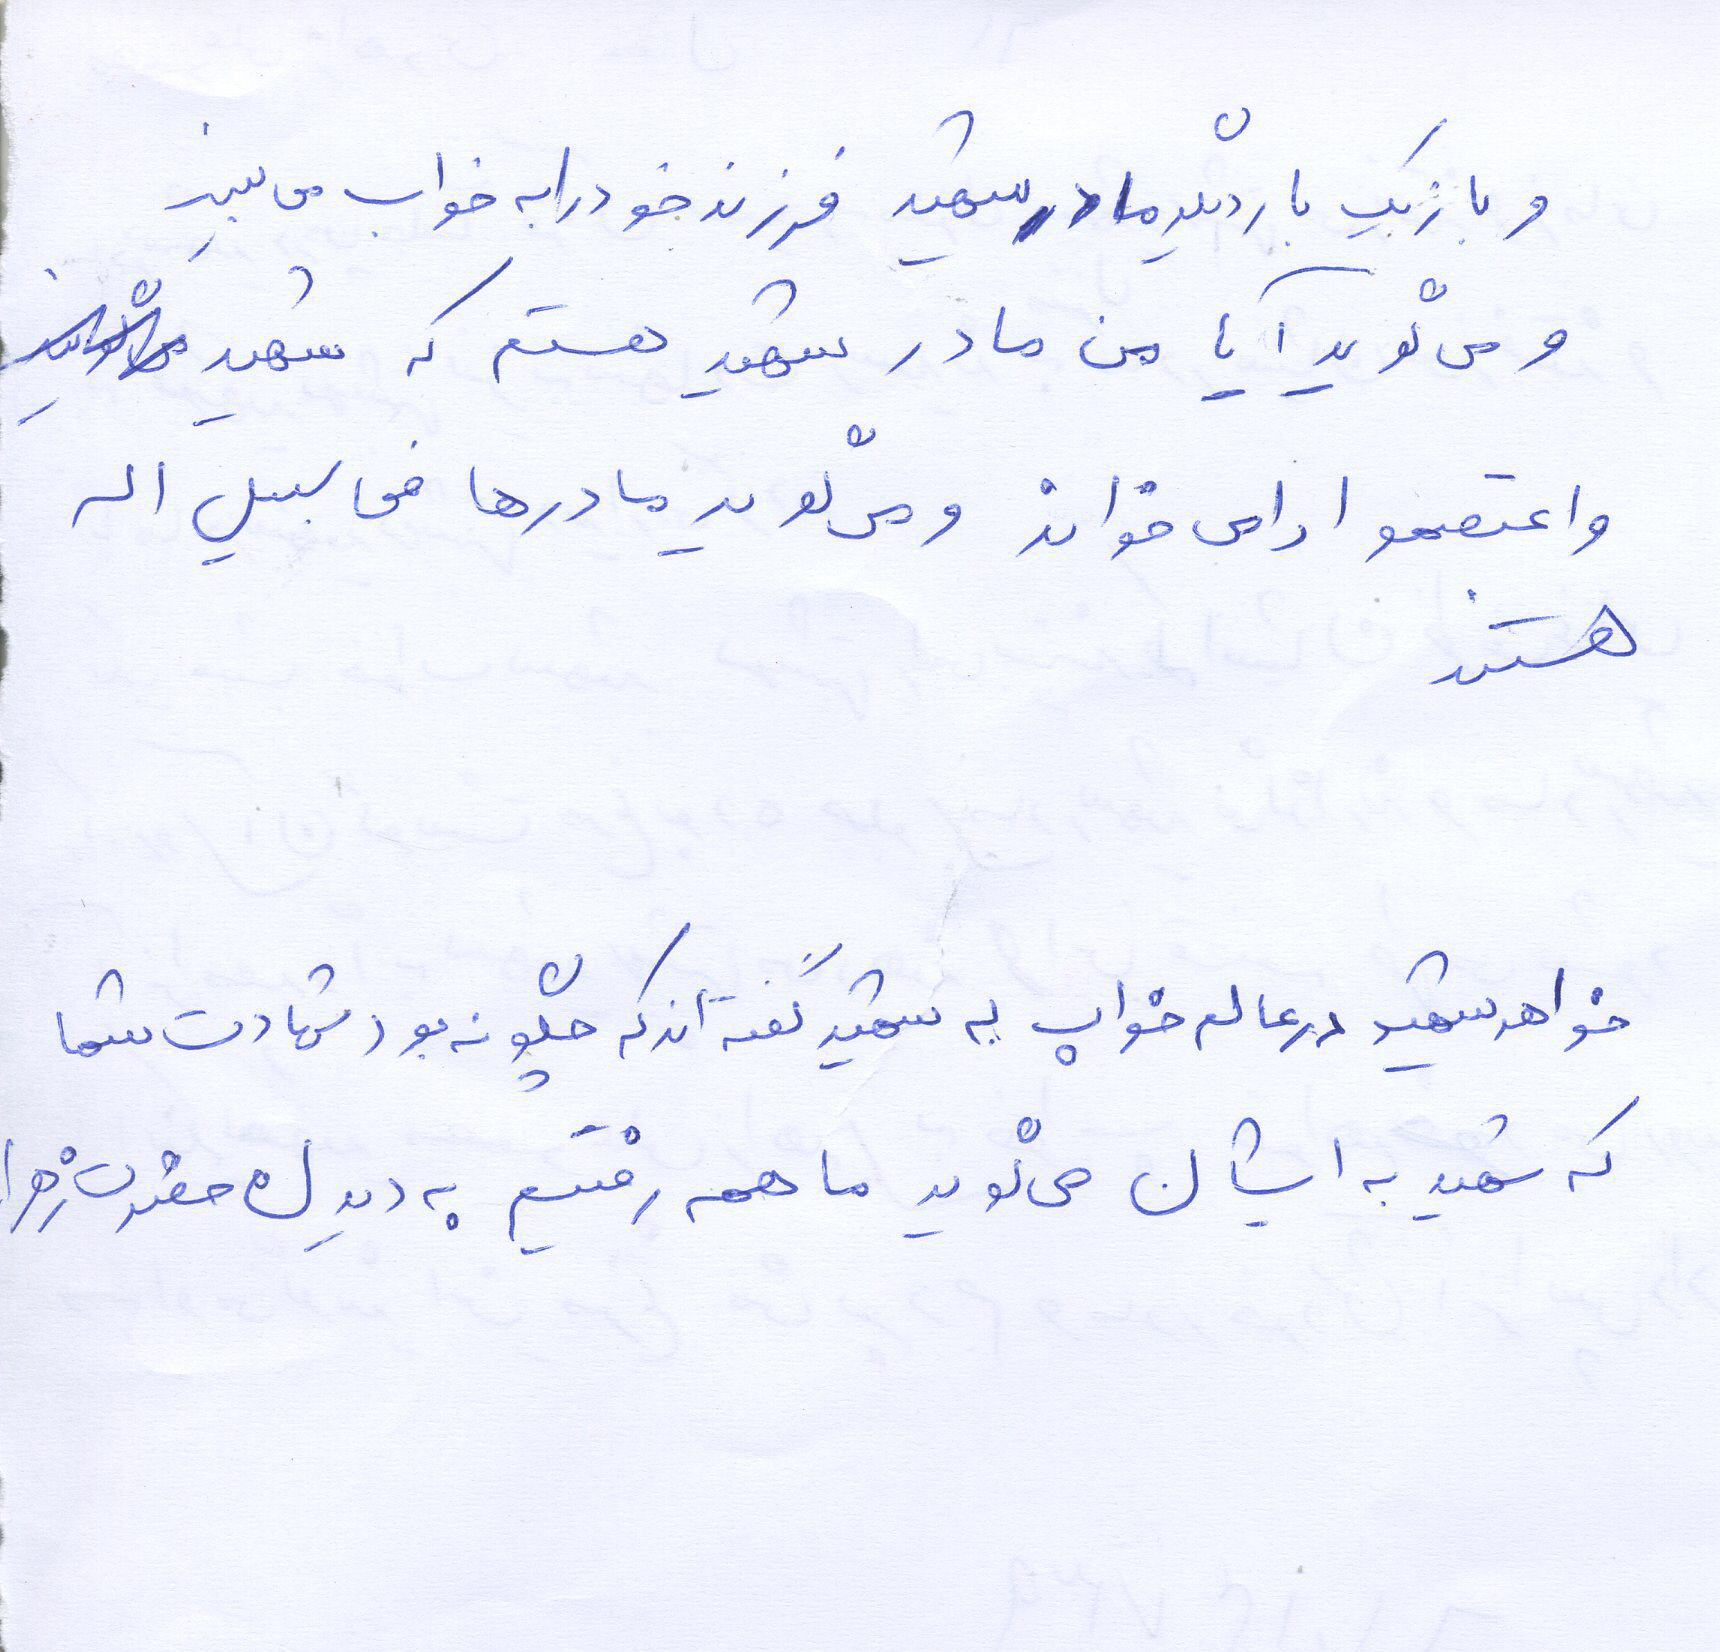 و باز یک بار دیگر مادر شهید فرزند خود را به خواب می بیند
و می گوید آیا من مادر شهید هستم که شهید
واعتصموا را می خواند و می گوید مادرها فی سبیل اله
هستند
خواهر شهید در عالم خواب به شهید گفته اند که چگونه بود شهادت شما
که شهید به ایشان می گوید ما همه رفتیم به دیدن حضرت زهرا